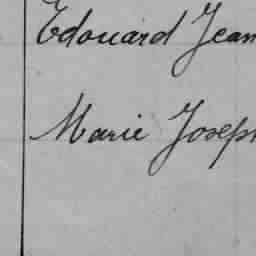 Edouard Jean
Marie Joseph